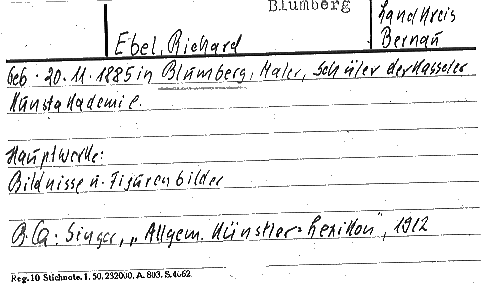 Blumberg
Landkreis
Bernau
Ebel, Richard
Geb. 20.11.1885 in Blumberg, Maler, Schüler der Kasseler
Kunstakademie.
Hauptwerke:
Bildnisse u. Figurenbilder
B.Q.: Singer, „Allgem. Künstler-Lexikon", 1912
Reg. 10 Stichnote. 1. 50. 232000. A. 803. S. 4662